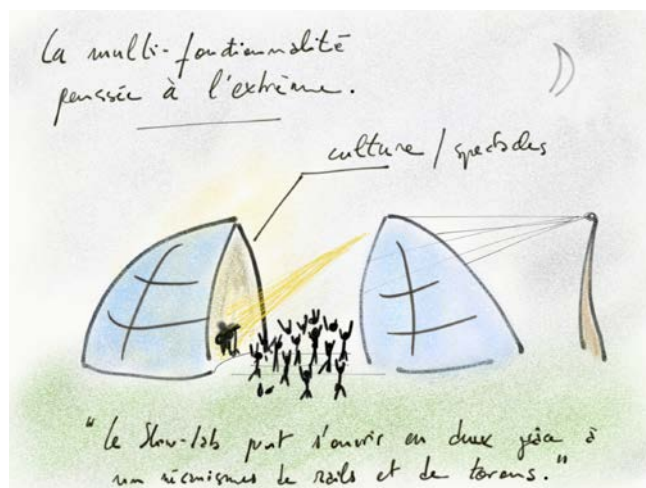 La multi-fonctionnalité
poussée à l'extrême.
culture / spectacles
"Le Slow-lab peut s'ouvrir en deux grâce à
un mécanismes de rails et de torons."